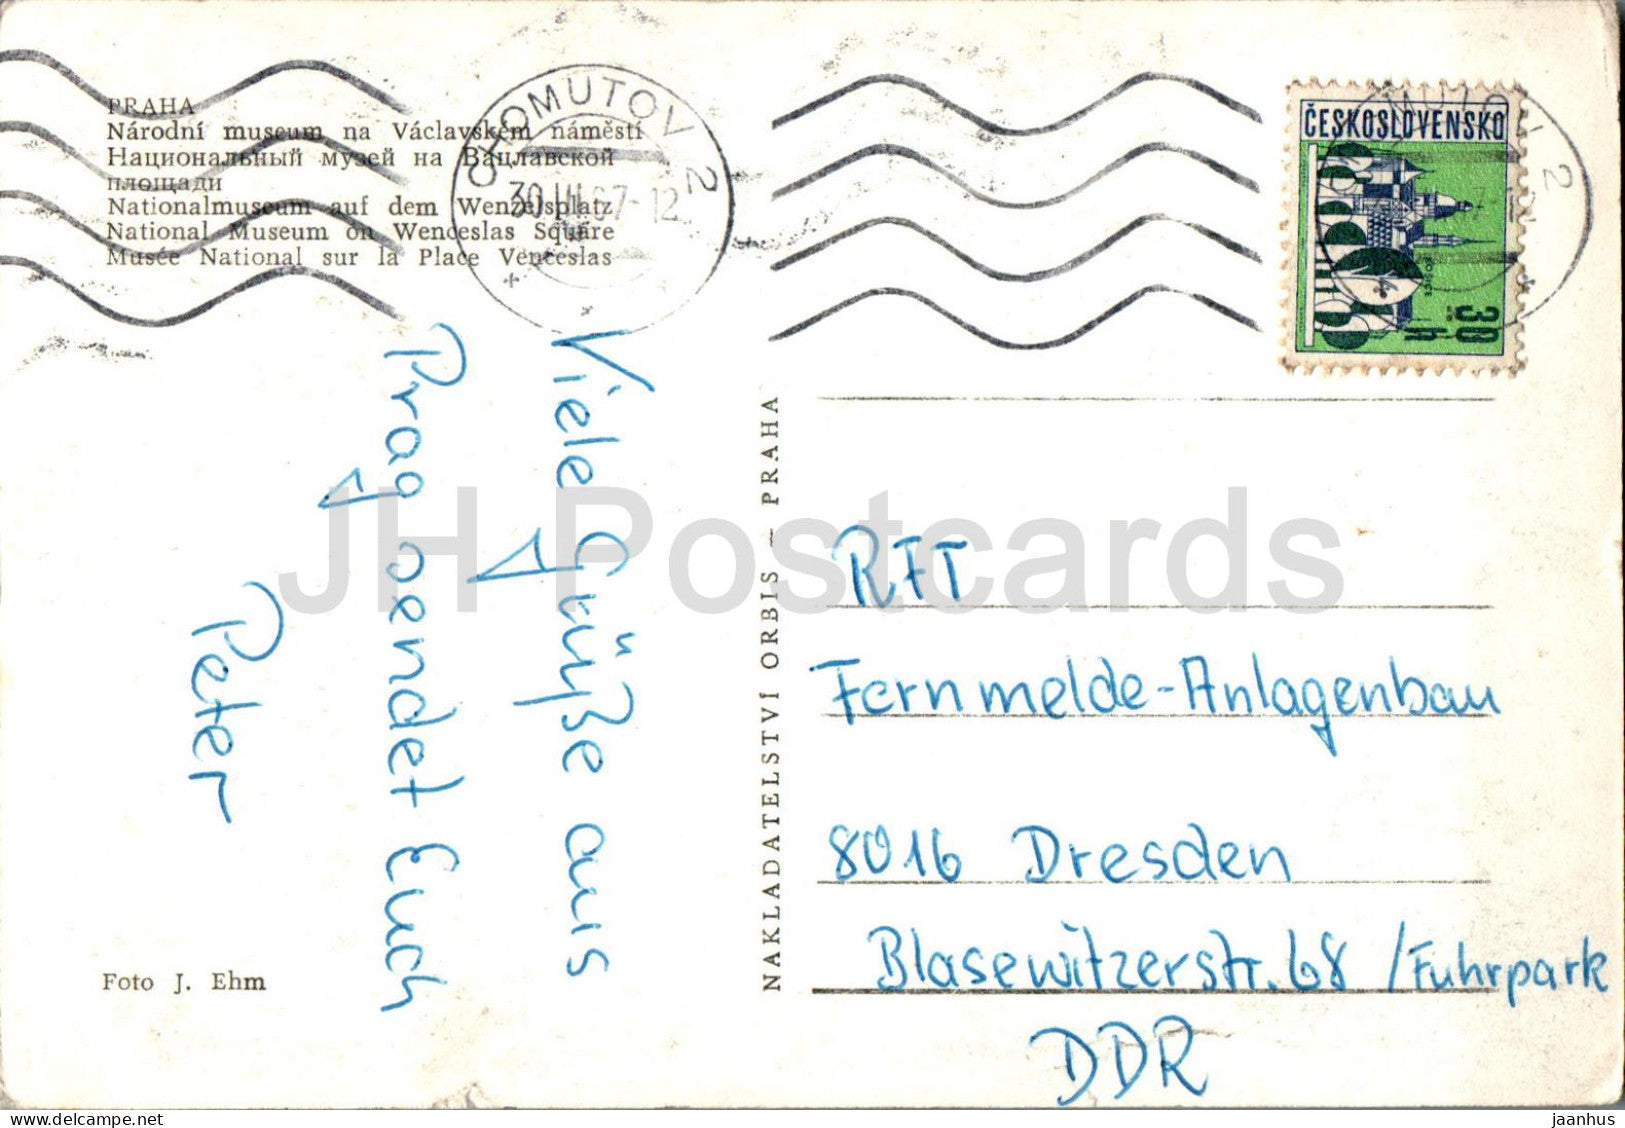 PRAHA
Národní museum na Václavském náměstí
Национальный музей на Вацлавской
площади
Nationalmuseum auf dem Wenzelsplatz
National Museum on Wenceslas Square
Musée National sur la Place Venceslas
CHOMUTOV 2
-12
ČESKOSLOVENSKO
30
H
2
Viele Grüße aus
Prag sendet Euch
Peter
Foto J. Ehm
NAKLADATELSTVÍ ORBIS — PRAHA
RFT
Fernmelde-Anlagenbau
8016 Dresden
Blasewitzerstr. 68 /Fuhrpark
DDR
JH Postcards
delcampe.net
jaanhus